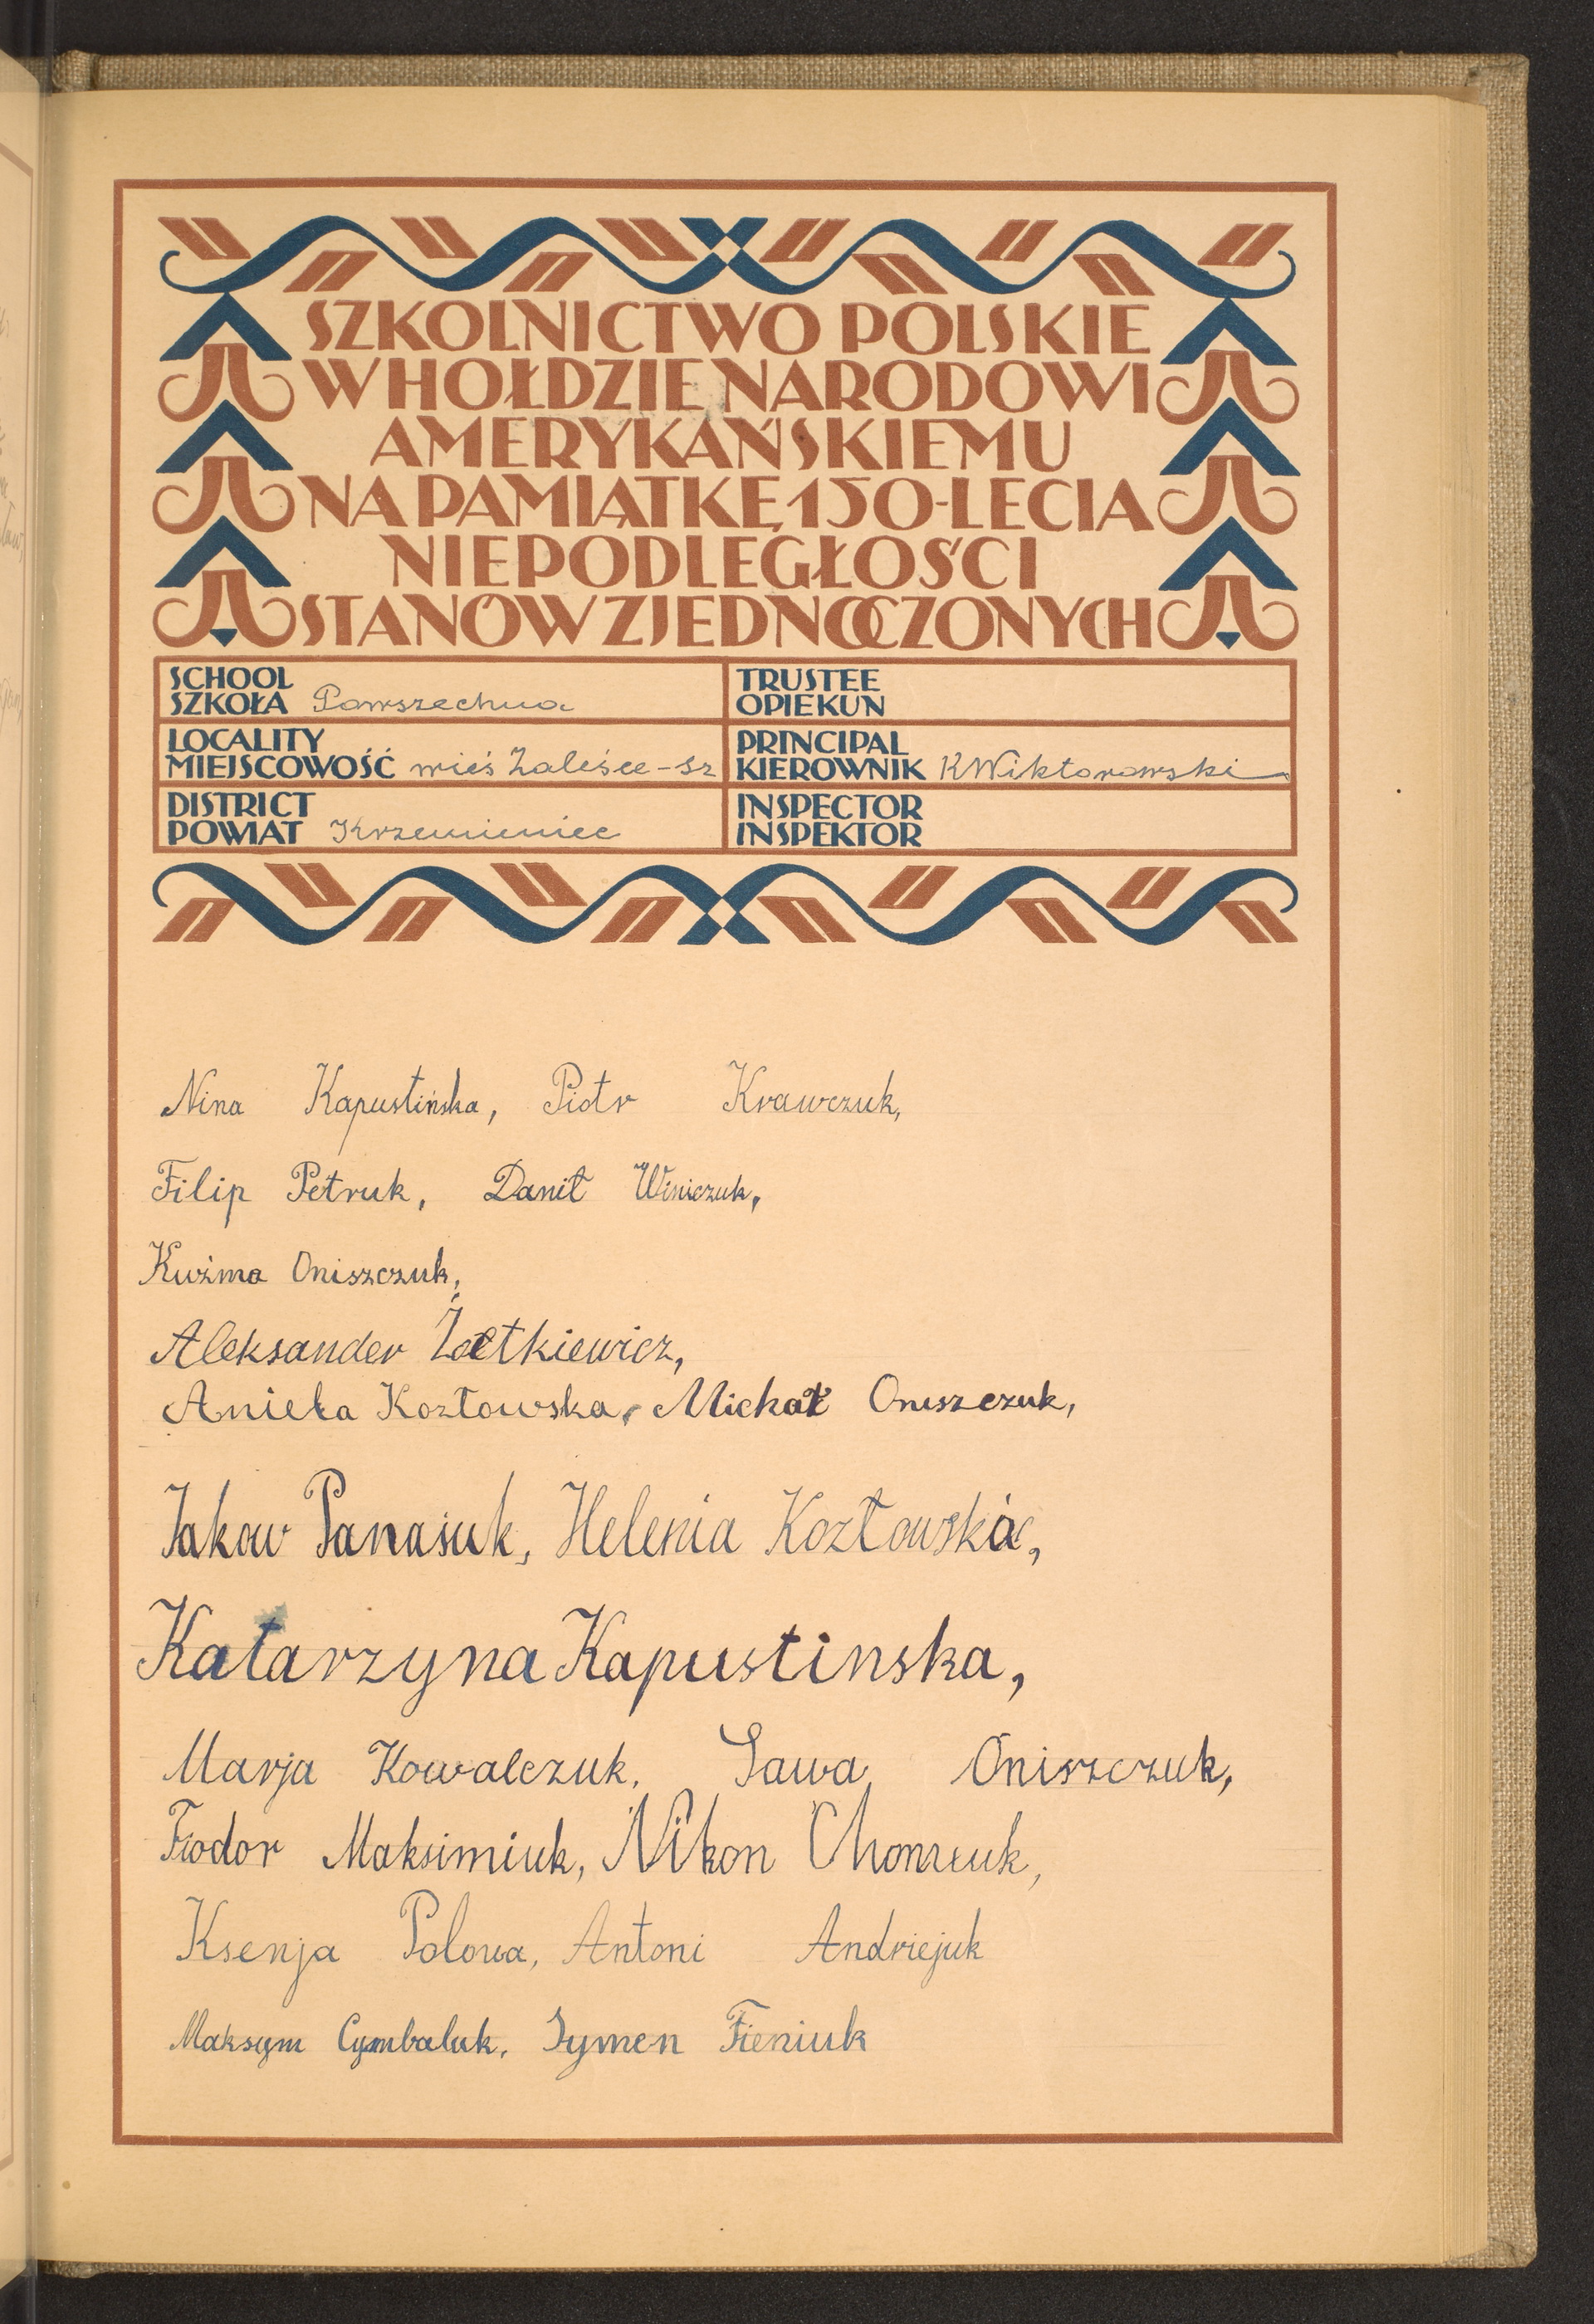 SZKOLNICTWO POLSKIE
W HOŁDZIE NARODOWI
AMERYKAŃSKIEMU
NA PAMIĄTKĘ 150-LECIA
NIEPODLEGŁOŚCI
STANÓW ZJEDNOCZONYCH
SCHOOL
SZKOŁA Powszechna
TRUSTEE
OPIEKUN
LOCALITY
MIEJSCOWOŚĆ wieś Zaleśce-sz
PRINCIPAL
KIEROWNIK KWiktorowski
DISTRICT
POWIAT Krzemieniec
INSPECTOR
INSPEKTOR
Nina Kapustińska, Piotr Krawczuk,
Filip Petruk, Danił Winiczuk,
Kuźma Oniszczuk,
Aleksander
Aniela Kozłowska, Michał Oniszczuk,
Jakow Panasiuk, Helenia Kozłowska,
Katarzyna Kapustinska,
Marja Kowalczuk, Sawa Oniszczuk,
Fiodor Maksimiuk, Nikon
Ksenja Polowa, Antoni Andriejuk
Maksym Cymbaluk, Symen Fieniuk